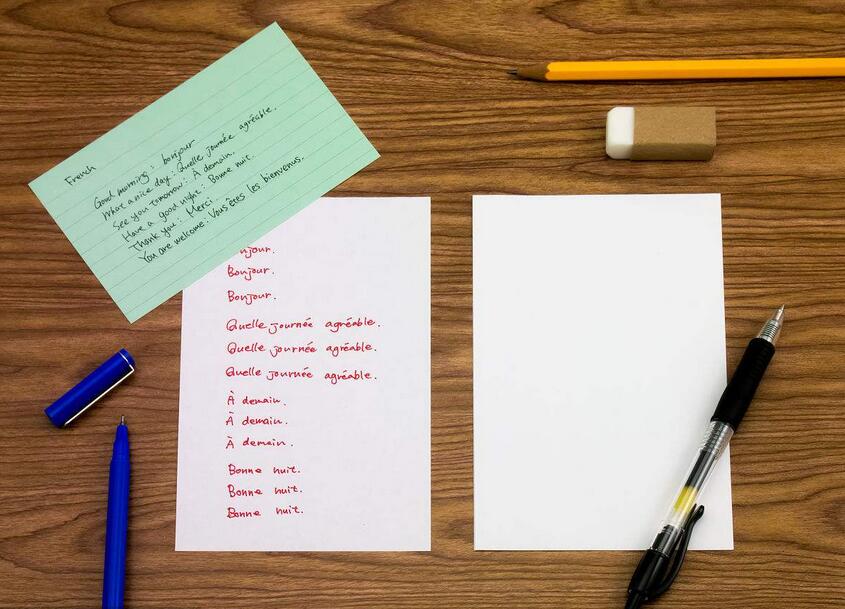 French
Good morning : bonjour
What a nice day : Quelle journée agréable.
See you tomorrow : À demain.
Have a good night : Bonne nuit.
Thank you : Merci.
You are welcome : Vous êtes les bienvenus.
njour.
Bonjour.
Bonjour.
Quelle journée agréable.
Quelle journée agréable.
Quelle journée agréable.
À demain.
À demain.
À demain.
Bonne nuit.
Bonne nuit.
Bonne nuit.